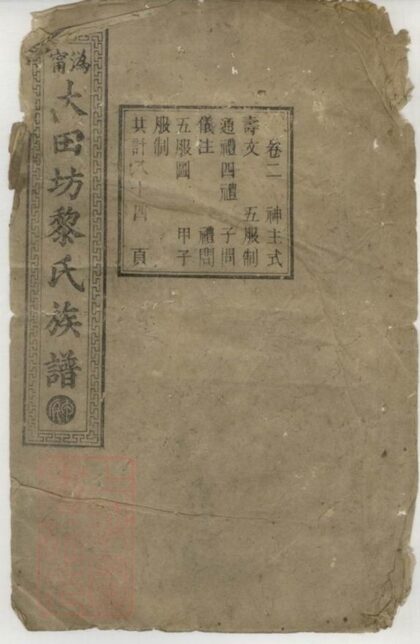 卷二 神主式
壽文 五服制
通禮四禮 子問
儀注 禮問
五服圖 甲子
服制
共計十四頁
溈甯
大田坊黎氏族譜